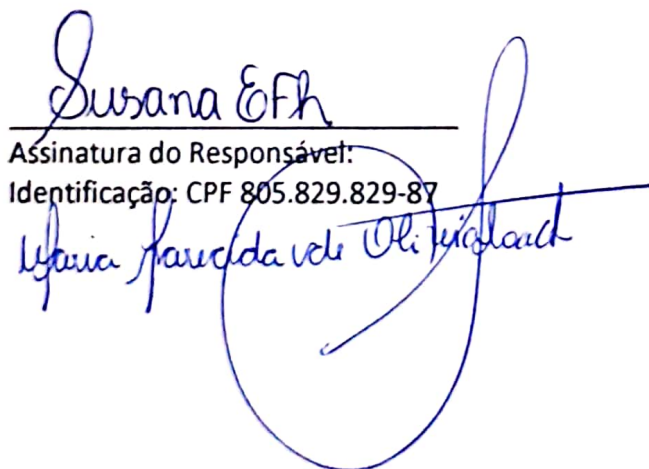 Susana EFh
Assinatura do Responsável:
Identificação: CPF 805.829.829-87
Maria Aparecida de